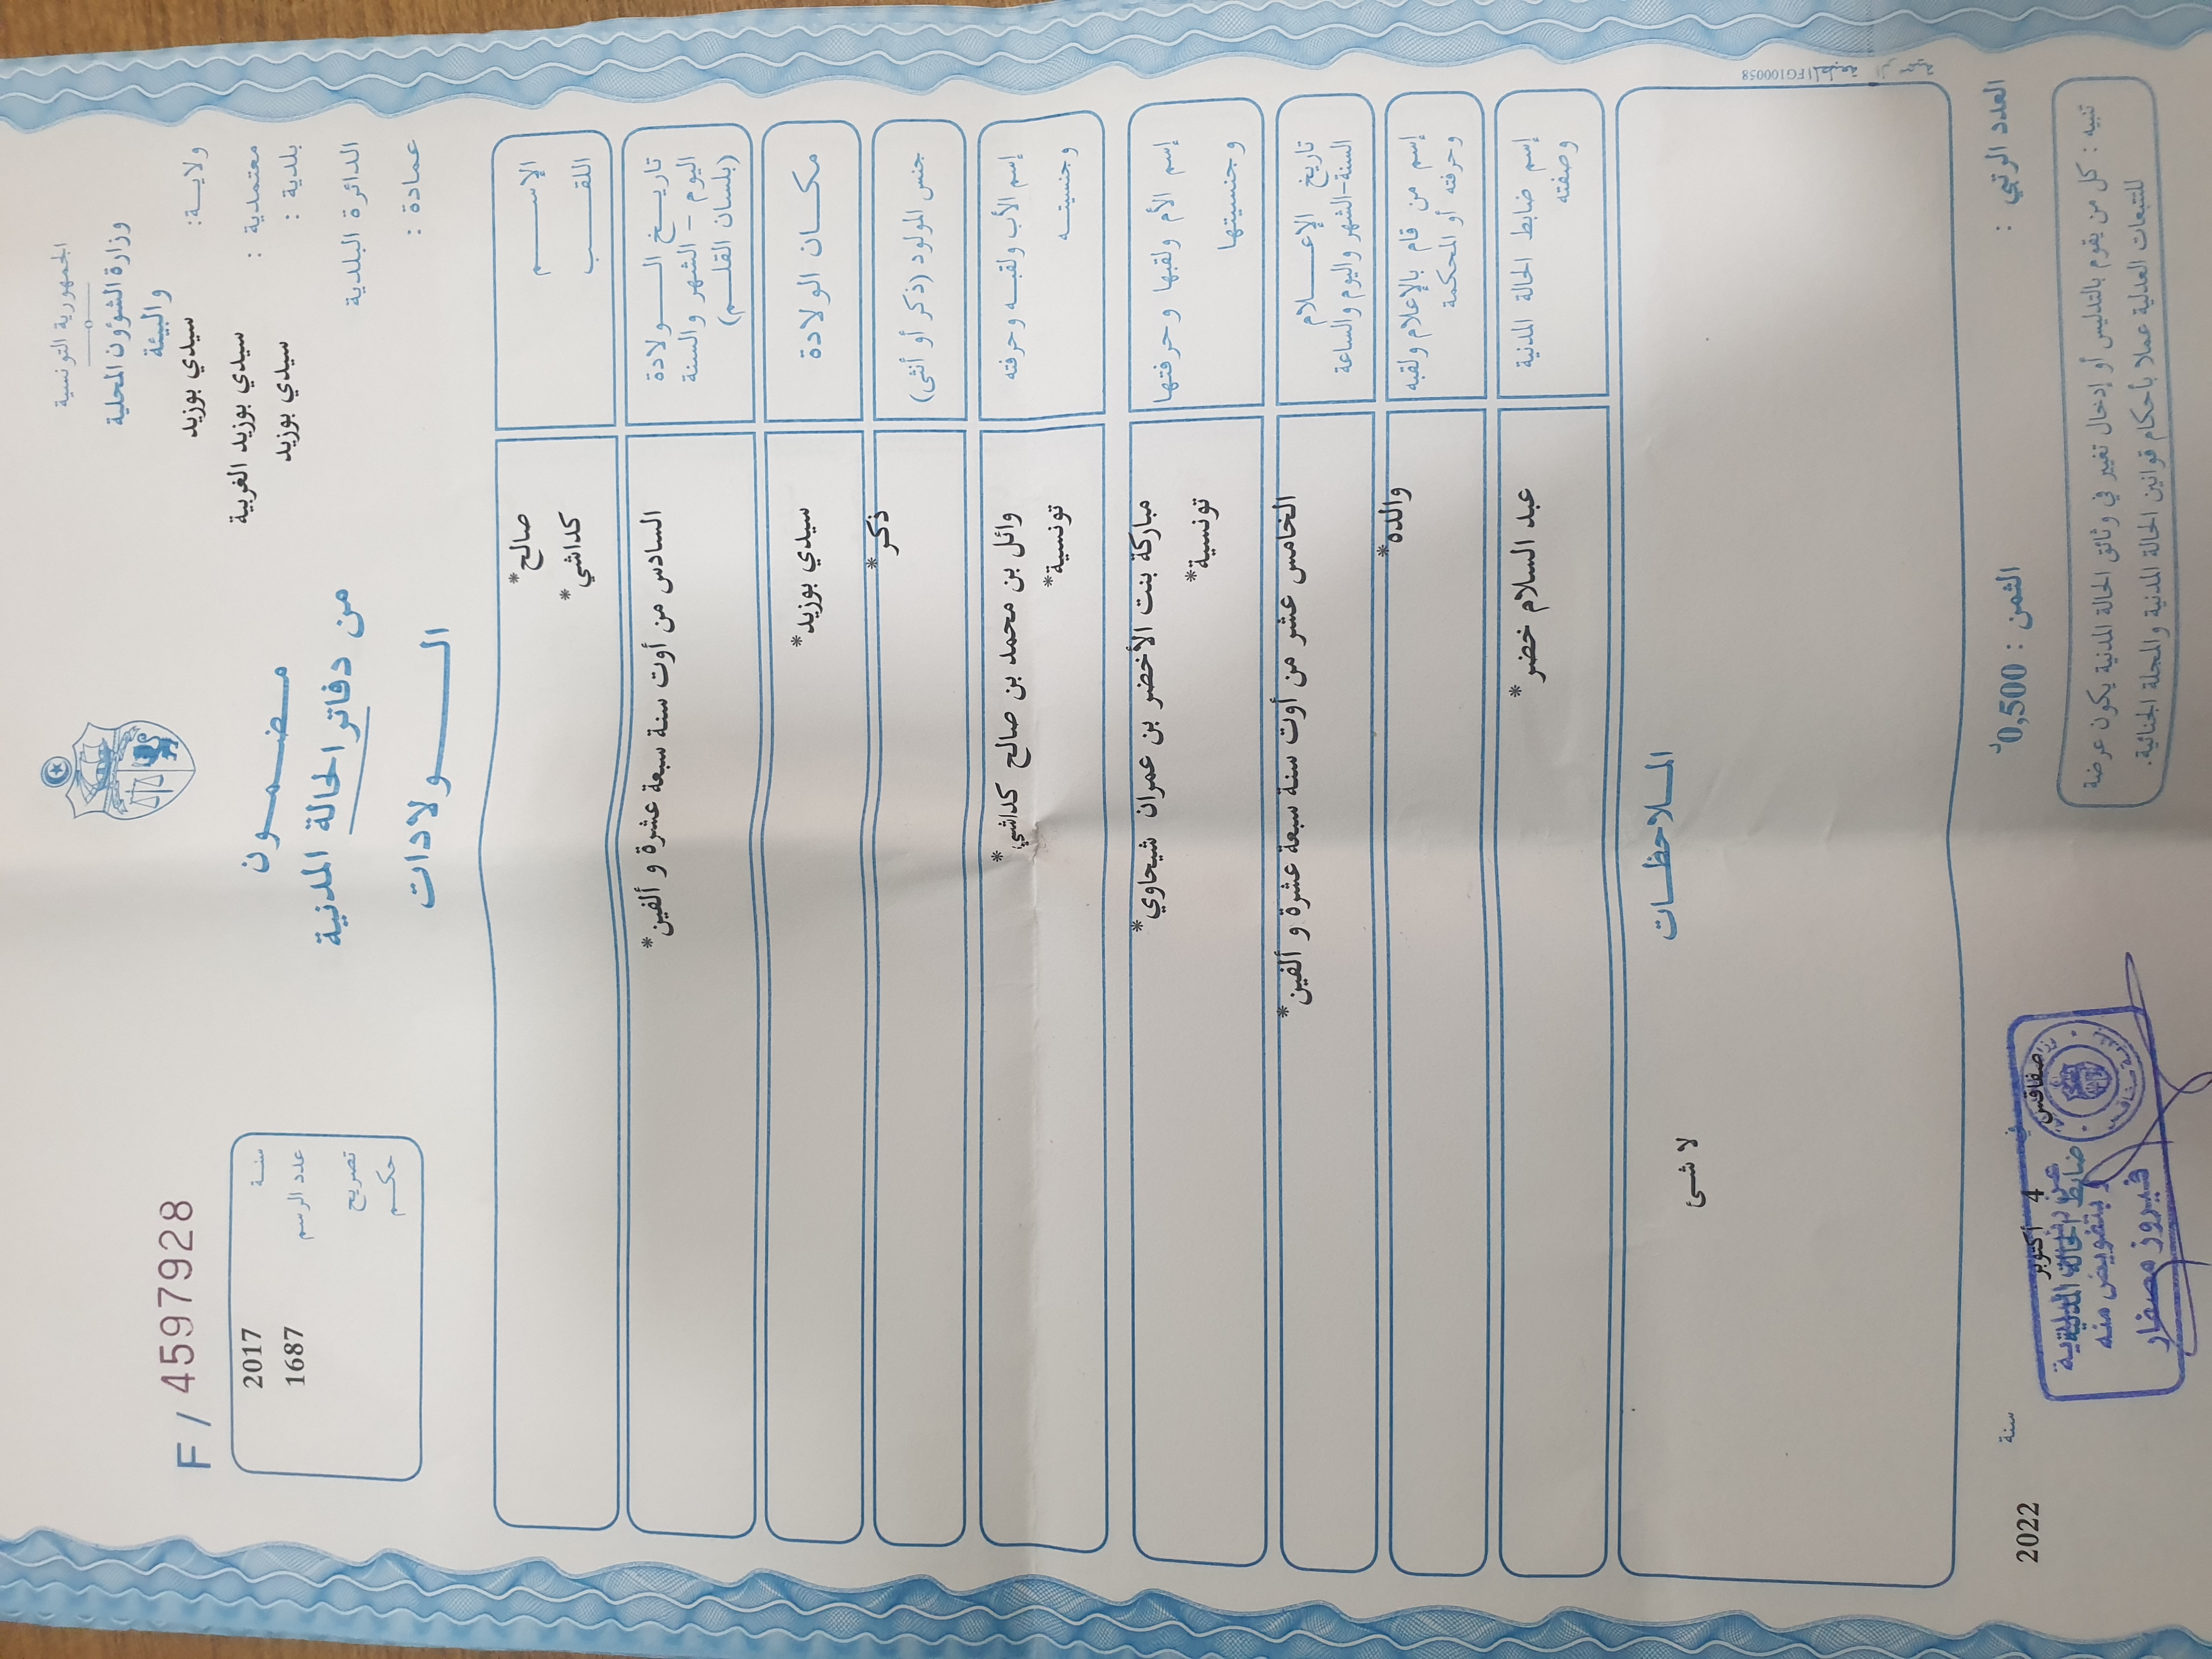 الجمهورية التونسية
وزارة الشؤون المحلية
والبيئة
ولايـة: سيدي بوزيد
معتمدية : سيدي بوزيد الغربية
بلدية : سيدي بوزيد
الدائرة البلدية
عمادة :
مـضـمـون
من دفاتر الحالة المدنية
الـولادات
F / 4597928
سنـة 2017
عدد الرسم 1687
تصريح
حكـم
الإسـم صالح*
اللقـب كداشي*
تاريـخ الـولادة
اليوم - الشهر والسنة
(بلسان القلـم)
السادس من أوت سنة سبعة عشرة و ألفين*
مكـان الولادة سيدي بوزيد*
جنس المولود (ذكر أو أنثى) ذكر*
إسم الأب ولقبـه وحرفته وائل بن محمد بن صالح كداشي*
وجنسيتـه تونسية*
إسم الأم ولقبها وحرفتها مباركة بنت الأخضر بن عمران شيحاوي*
وجنسيتها تونسية*
تاريخ الإعـلام
السنة-الشهر واليوم والساعة
الخامس عشر من أوت سنة سبعة عشرة و ألفين*
إسم من قام بالإعلام ولقبه والده*
وحرفته أو المحكمة
إسم ضابط الحالة المدنية عبد السلام خضر*
وصفته
المـلاحظـات
لا شئ
FG100058
العدد الرتبي :
الثمن : 0,500د
صفاقس في 4 أكتوبر سنة 2022
ضابط الحالة المدنية
و بتفويض منه
فيروز مصفار
تنبيه : كل من يقوم بالتدليس أو إدخال تغيير في وثائق الحالة المدنية يكون عرضة
للتتبعات العدلية عملا بأحكام قوانين الحالة المدنية والمجلة الجنائية.